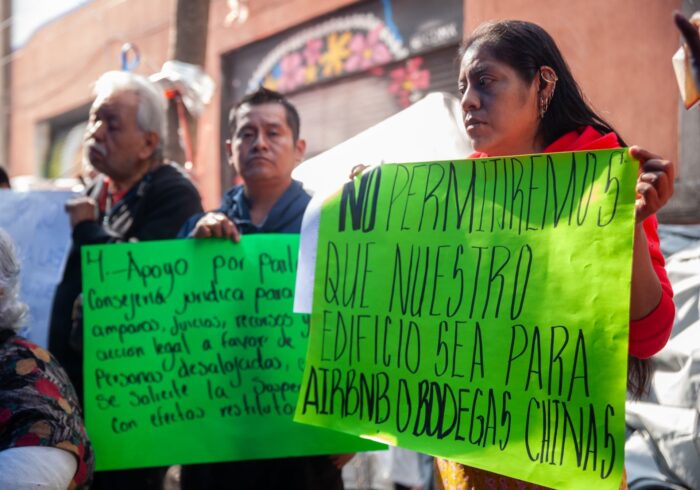 4.- Apoyo por
Consejería jurídica para
amparos, juicios, recursos y
acción legal a favor de
Personas desalojadas,
se solicite la
con efectos
NO PERMITIREMOS
QUE NUESTRO
EDIFICIO SEA PARA
AIRBNB O BODEGAS CHINAS